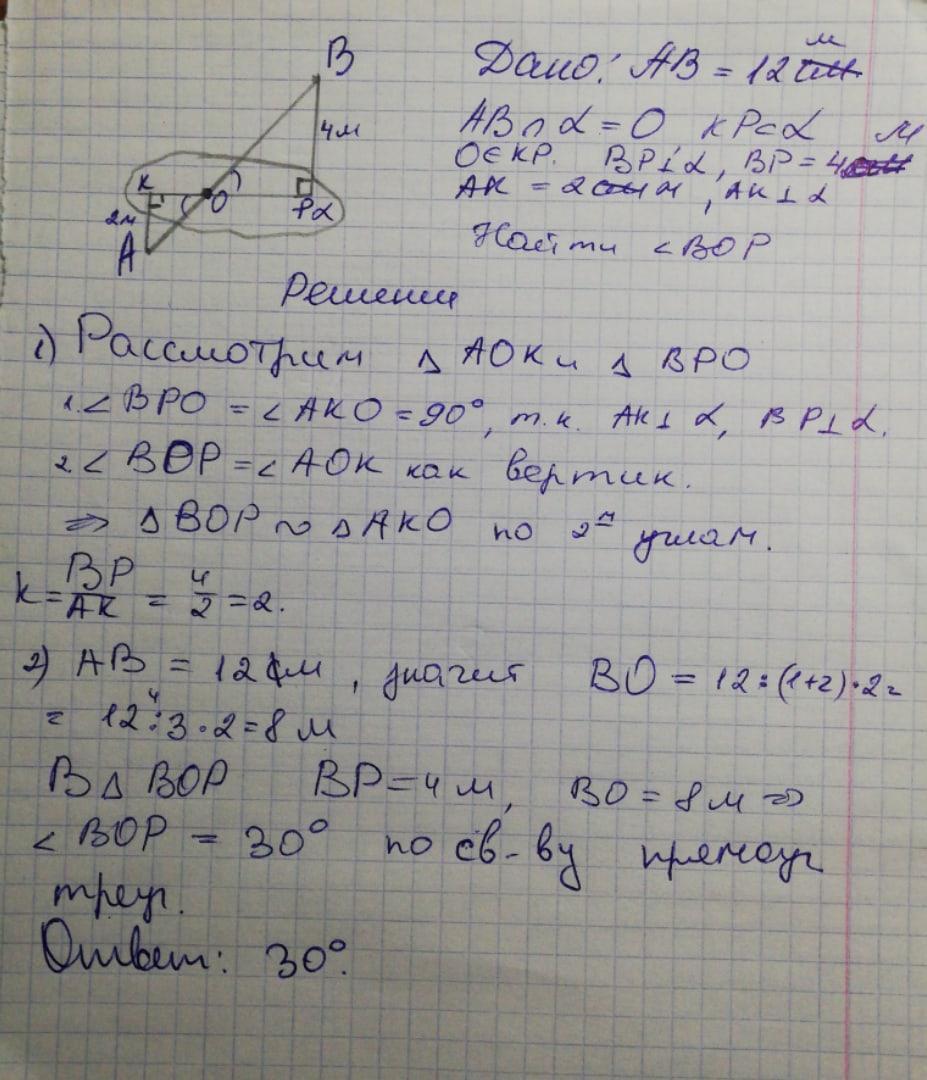 B
4м
K
O
P α
2м
A
Дано: AB = 12 м
AB ∩ α = O KP ⊂ α
O ∈ KP. BP ⊥ α, BP = 4 м
AK = 2 м, AK ⊥ α
Найти ∠BOP
Решении
1) Рассмотрим △ AOK и △ BPO
1. ∠ BPO = ∠ AKO = 90°, т.к. AK ⊥ α, BP ⊥ α.
2 ∠ BOP = ∠ AOK как вертик.
⇒ △ BOP ~ △ AKO по 2м углам.
k = BP/AK = 4/2 = 2.
2) AB = 12 м, значит BO = 12 : (1+2) · 2 =
= 12 : 3 · 2 = 8 м
В △ BOP BP = 4 м, BO = 8 м ⇒
∠ BOP = 30° по св-ву прямоуг
треуг.
Ответ: 30°.